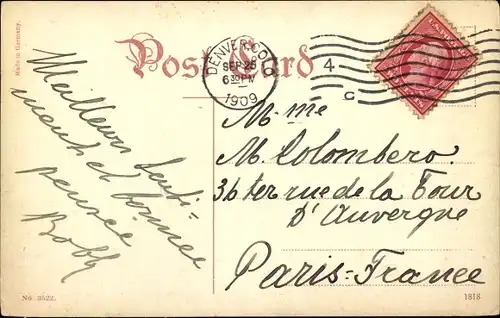 Made in Germany.
Post Card
DENVER, COLO.
SEP 25
6 30 PM
1909
4
C
Meilleurs senti-
ments et bonnee
pensee
Bobby
Mme
M. Colombero.
36 ter rue de la Tour
D'Auvergne
Paris-France
No. 3522.
1818